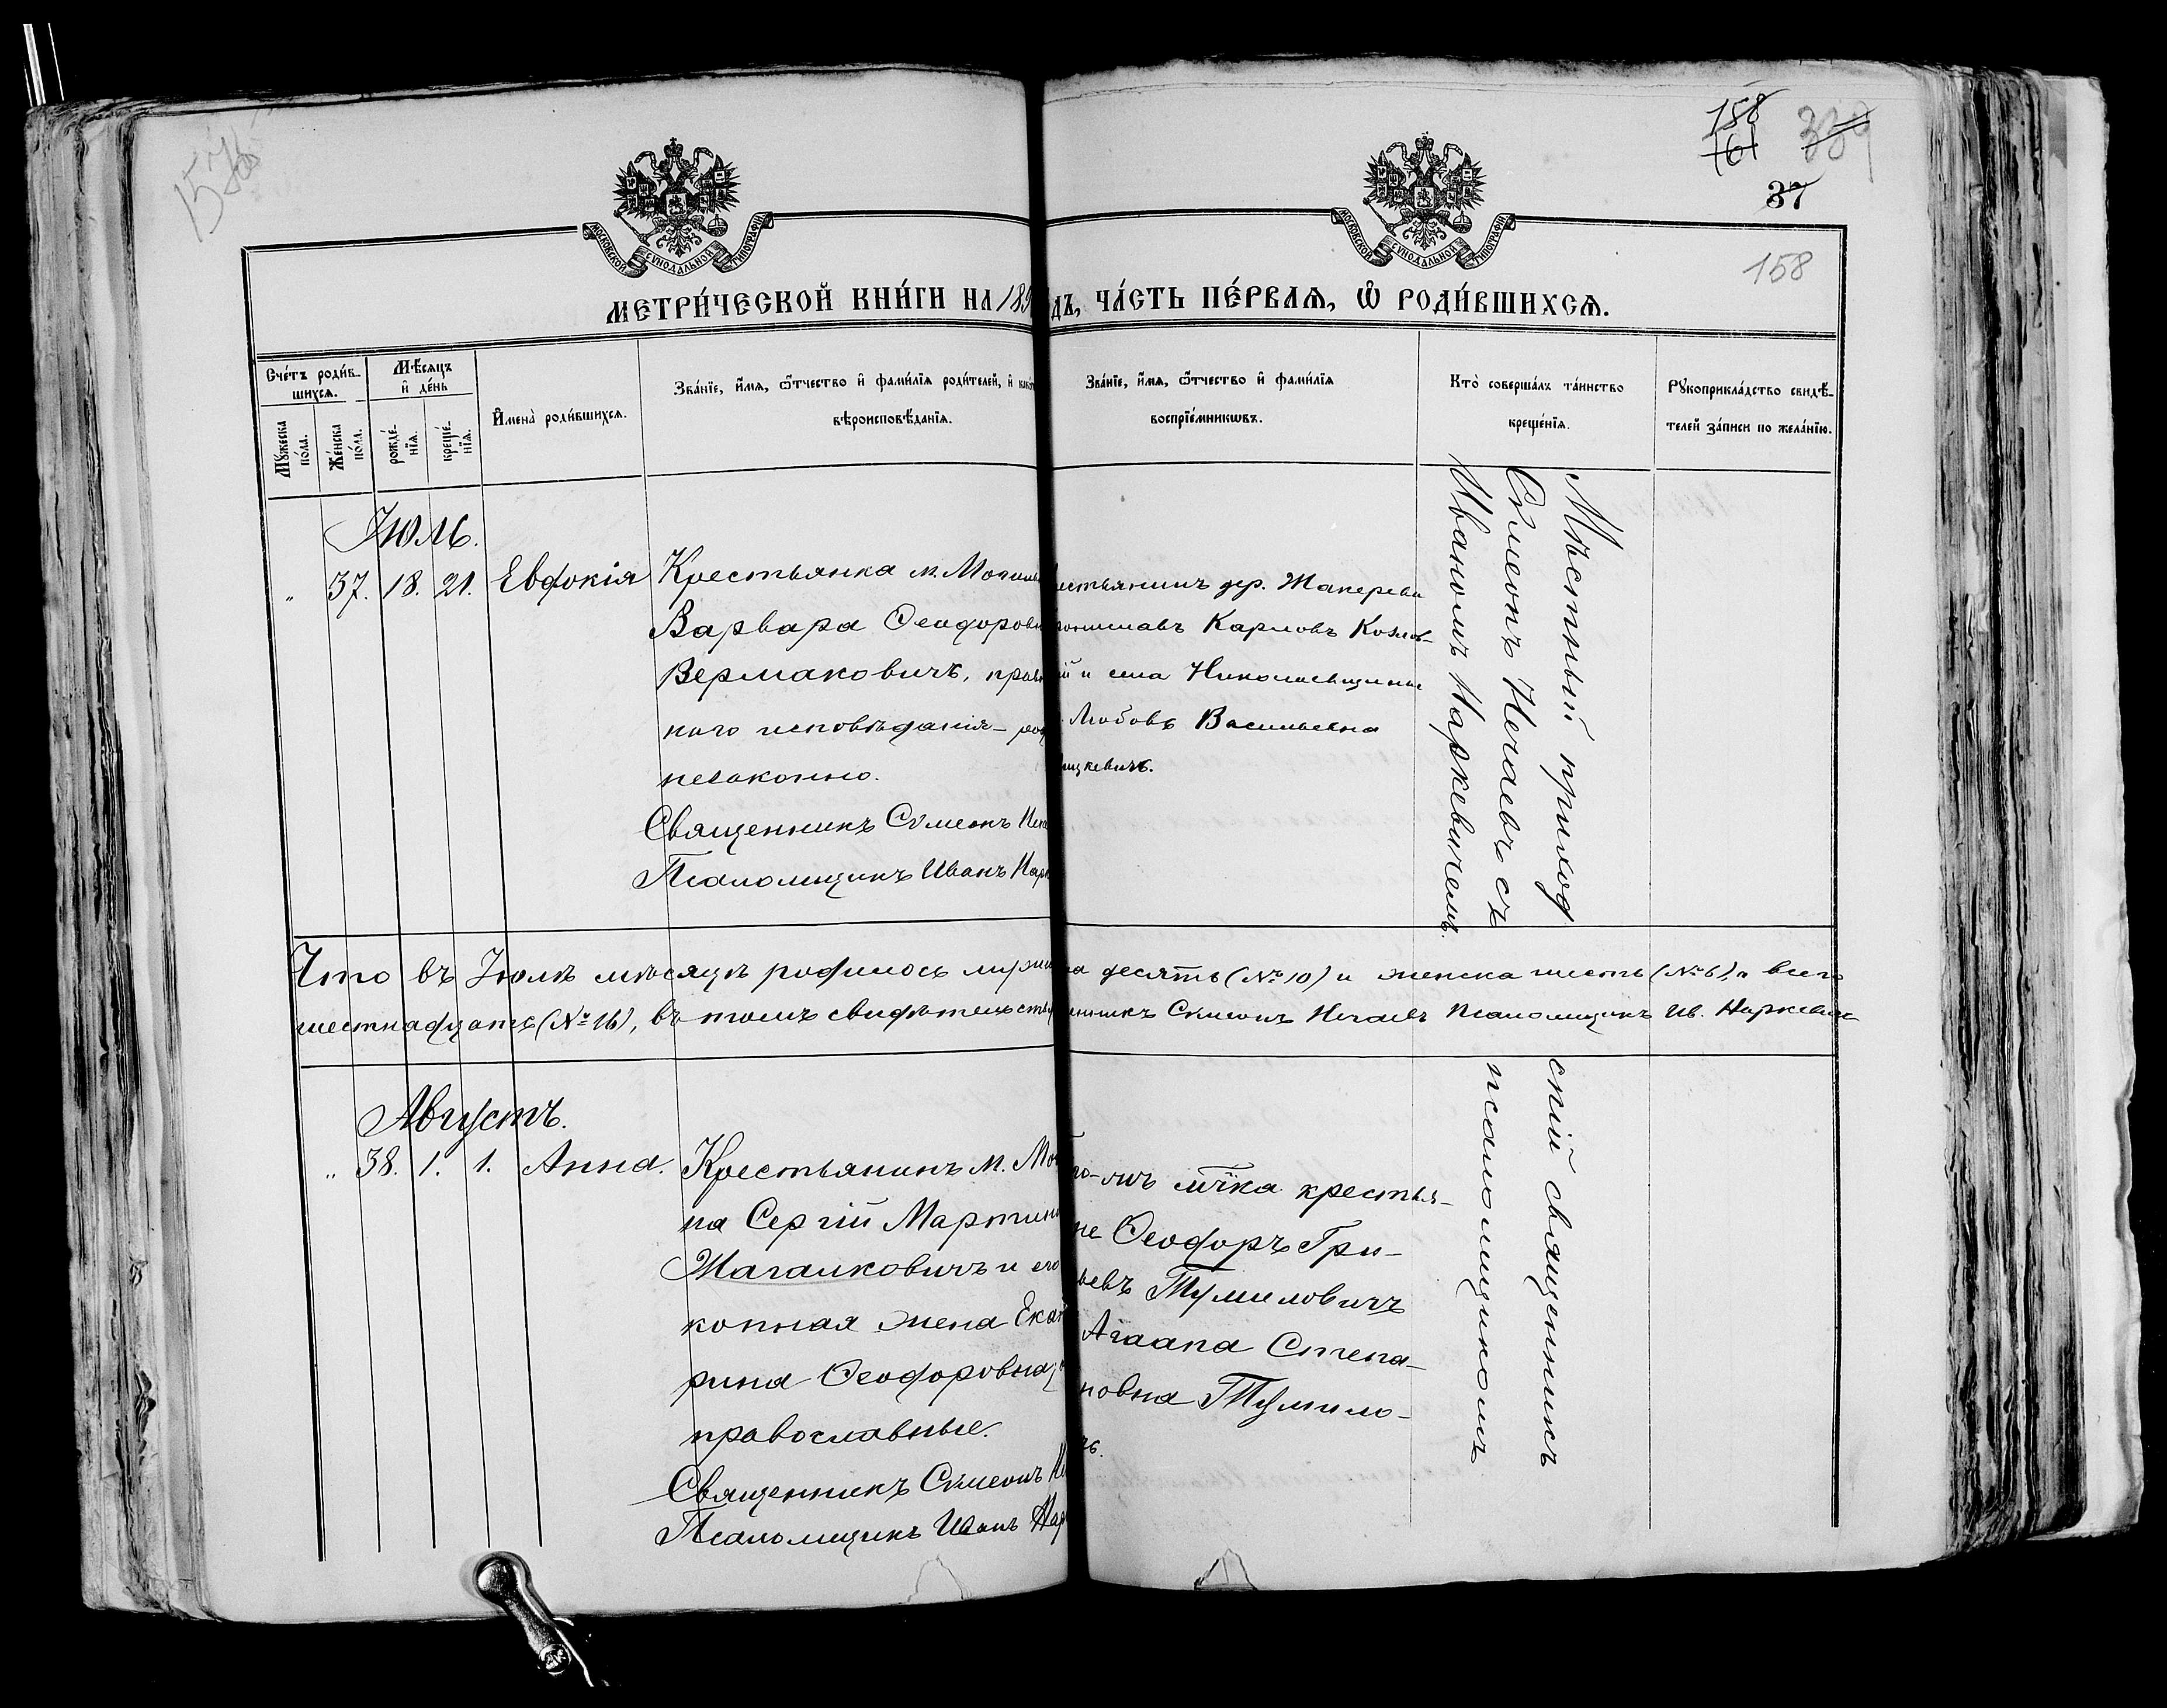 158
161
339
37
158
МОСКОВСКОЙ СУНОДАЛЬНОЙ ТИПОГРАФІИ
МОСКОВСКОЙ СУНОДАЛЬНОЙ ТИПОГРАФІИ
МЕТРИ́ЧЕСКОЙ КНИ́ГИ НА 189 ДЪ, ЧА́СТЬ ПЕ́РВАЯ, Ѽ РОДИ́ВШИХСЯ.
Сче́тъ роди́в-
шихся.
Мѣсяцъ
и де́нь
Му́жеска по́ла.
Же́нска по́ла.
рожде́-
нїя.
креще́-
нїя.
Имена̀ роди́вшихся.
Зва́нїе, и́мя, ѻ́тчество и фами́лїя роди́телей, и како
вѣроисповѣданїя.
Зва́нїе, и́мя, ѻ́тчество и фами́лїя
воспрїе́мникѡвъ.
Кто̀ соверша́лъ та́инство
креще́нїя.
Рꙋкоприкла́дство свидѣ-
телей за́писи по жела́нїю.
Іюль.
" 37. 18. 21. Евдокія
Крестьянка м. Могиль
Варвара Ѳеодоровн
Вермаковичъ, прав
наго исповѣданія – род
незаконно.
Священникъ Сѵмеонъ Неча
Псаломщикъ Иванъ Нарк
естьянинъ дер. Жаперевы
рониславъ Карловъ Козлов-
ій и села Николаевщины
Любовь Васильевна
ицкевичъ.
Мѣстный приход
Сѵмеонъ Нечаевъ съ
Иваномъ Наркевичемъ.
Что въ Іюлѣ мѣсяцѣ родилось мужес ка десять (№ 10) и женска шесть (№ 6), а всего
шестнадцать (№ 16), въ томъ свидѣтельств енникъ Сѵмеонъ Нечаевъ Псаломщикъ Ив. Наркевич
Августъ.
" 38. 1. 1. Анна.
Крестьянинъ м. Мог
на Сергій Мартинов
Жагалковичъ и его
конная жена Екат
рина Ѳеодоровна,
православные.
Священникъ Сѵмеонъ Не
Псаломщикъ Иванъ Нар
го-жъ мѣст̃ка крестья-
не Ѳеодоръ Гри-
ьевъ Тумиловичъ
Агаѳапа Степа-
новна Тумило-
чъ.
скій священникъ
псаломщикомъ